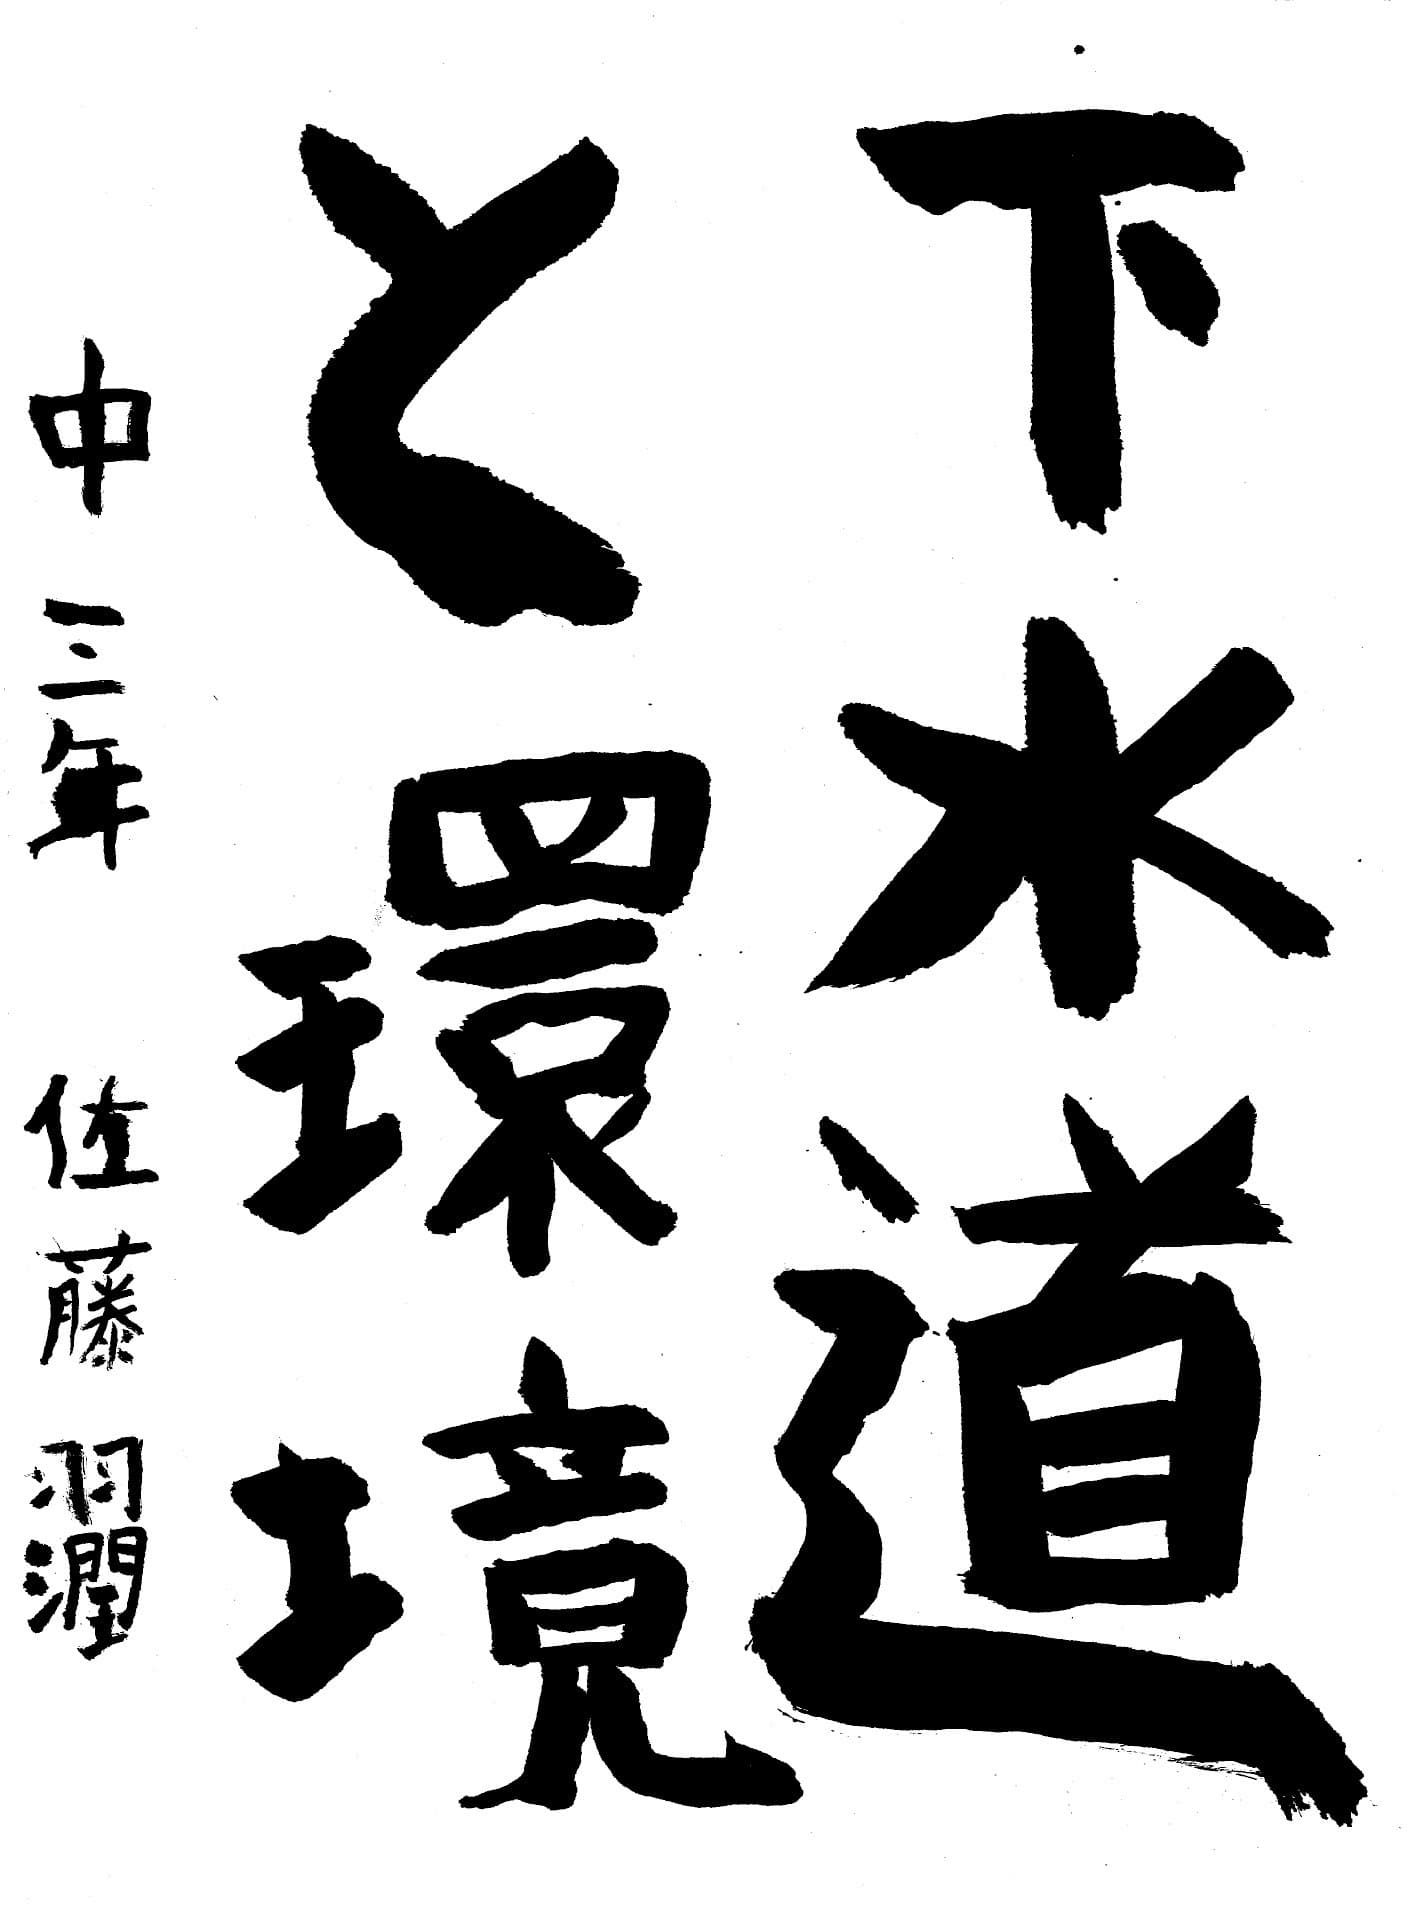 下水道
と環境
中三年 佐藤羽潤